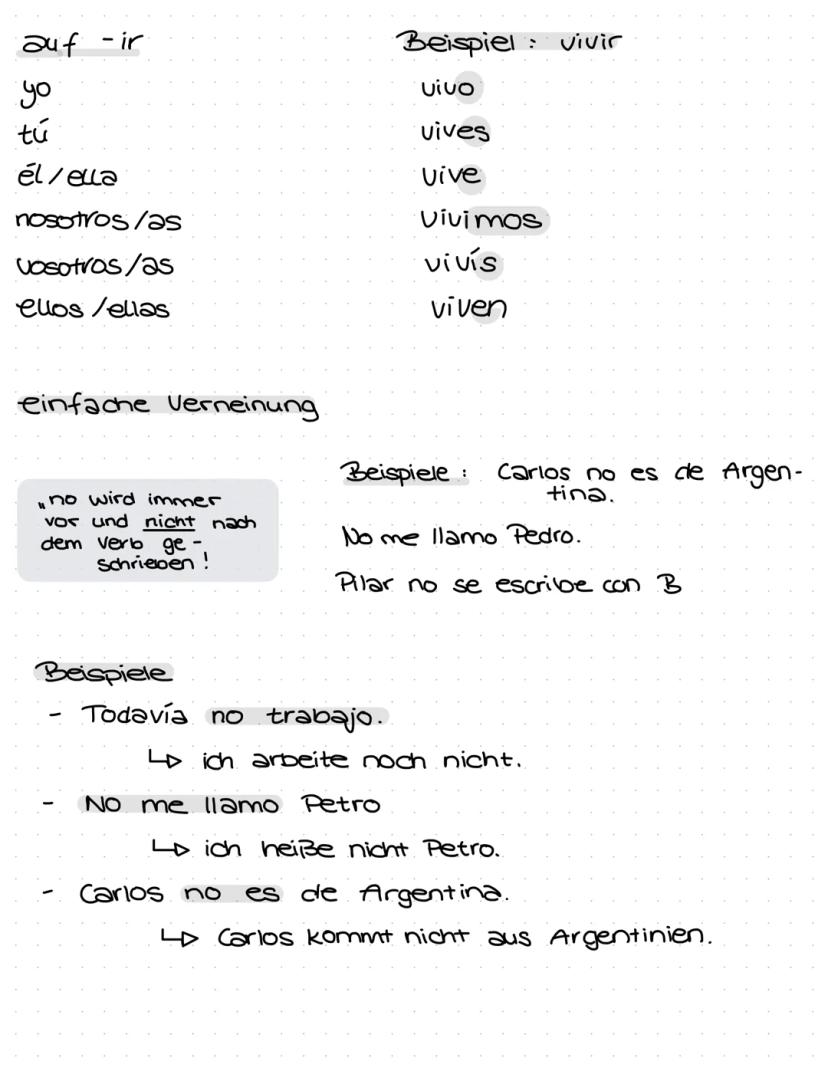 auf -ir Beispiel: vivir
yo vivo
tú vives
él/ella vive
nosotros/as vivimos
vosotros/as vivís
ellos/ellas viven
einfache Verneinung
Beispiele: Carlos no es de Argen-
tina.
„no wird immer
vor und nicht nach
dem Verb ge-
schrieben!
No me llamo Pedro.
Pilar no se escribe con B
Beispiele
- Todavía no trabajo.
↳ ich arbeite noch nicht.
- No me llamo Petro
↳ ich heiße nicht Petro.
- Carlos no es de Argentina.
↳ Carlos kommt nicht aus Argentinien.